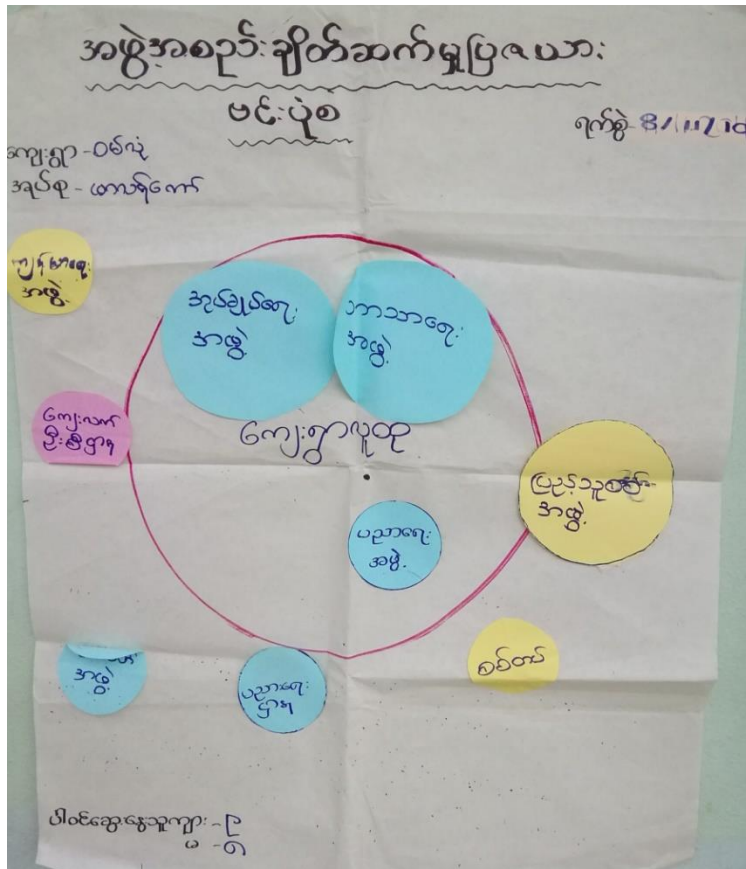 အဖွဲ့အစည်းချိတ်ဆက်မှုပြဇယား
ဗင်းပုံစံ
ရက်စွဲ-
ကျေးရွာ -ဝမ်လုံ
အုပ်စု -
ကျန်းမာရေး
အဖွဲ့
အုပ်ချုပ်ရေး
အဖွဲ့
ဘာသာရေး
အဖွဲ့
ကျေးလက်
ဦးစီးဌာန
ကျေးရွာလူထု
ပြည်သူ့စစ်
အဖွဲ့
ပညာရေး
အဖွဲ့
အဖွဲ့
ပညာရေး
ဌာန
စစ်တပ်
ပါဝင်ဆွေးနွေးသူကျား -၉
မ -၅